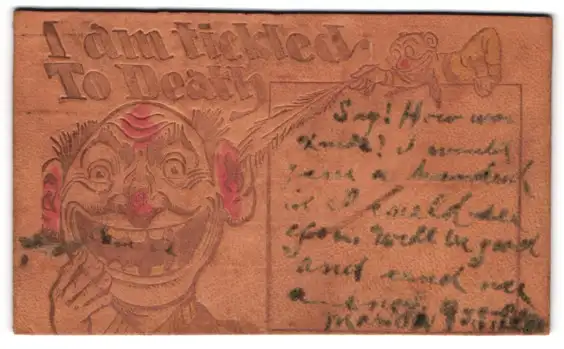 I am tickled
To Death
Say! How was
I would
give a hundred
if I could see
you. Well be good
and send me
a